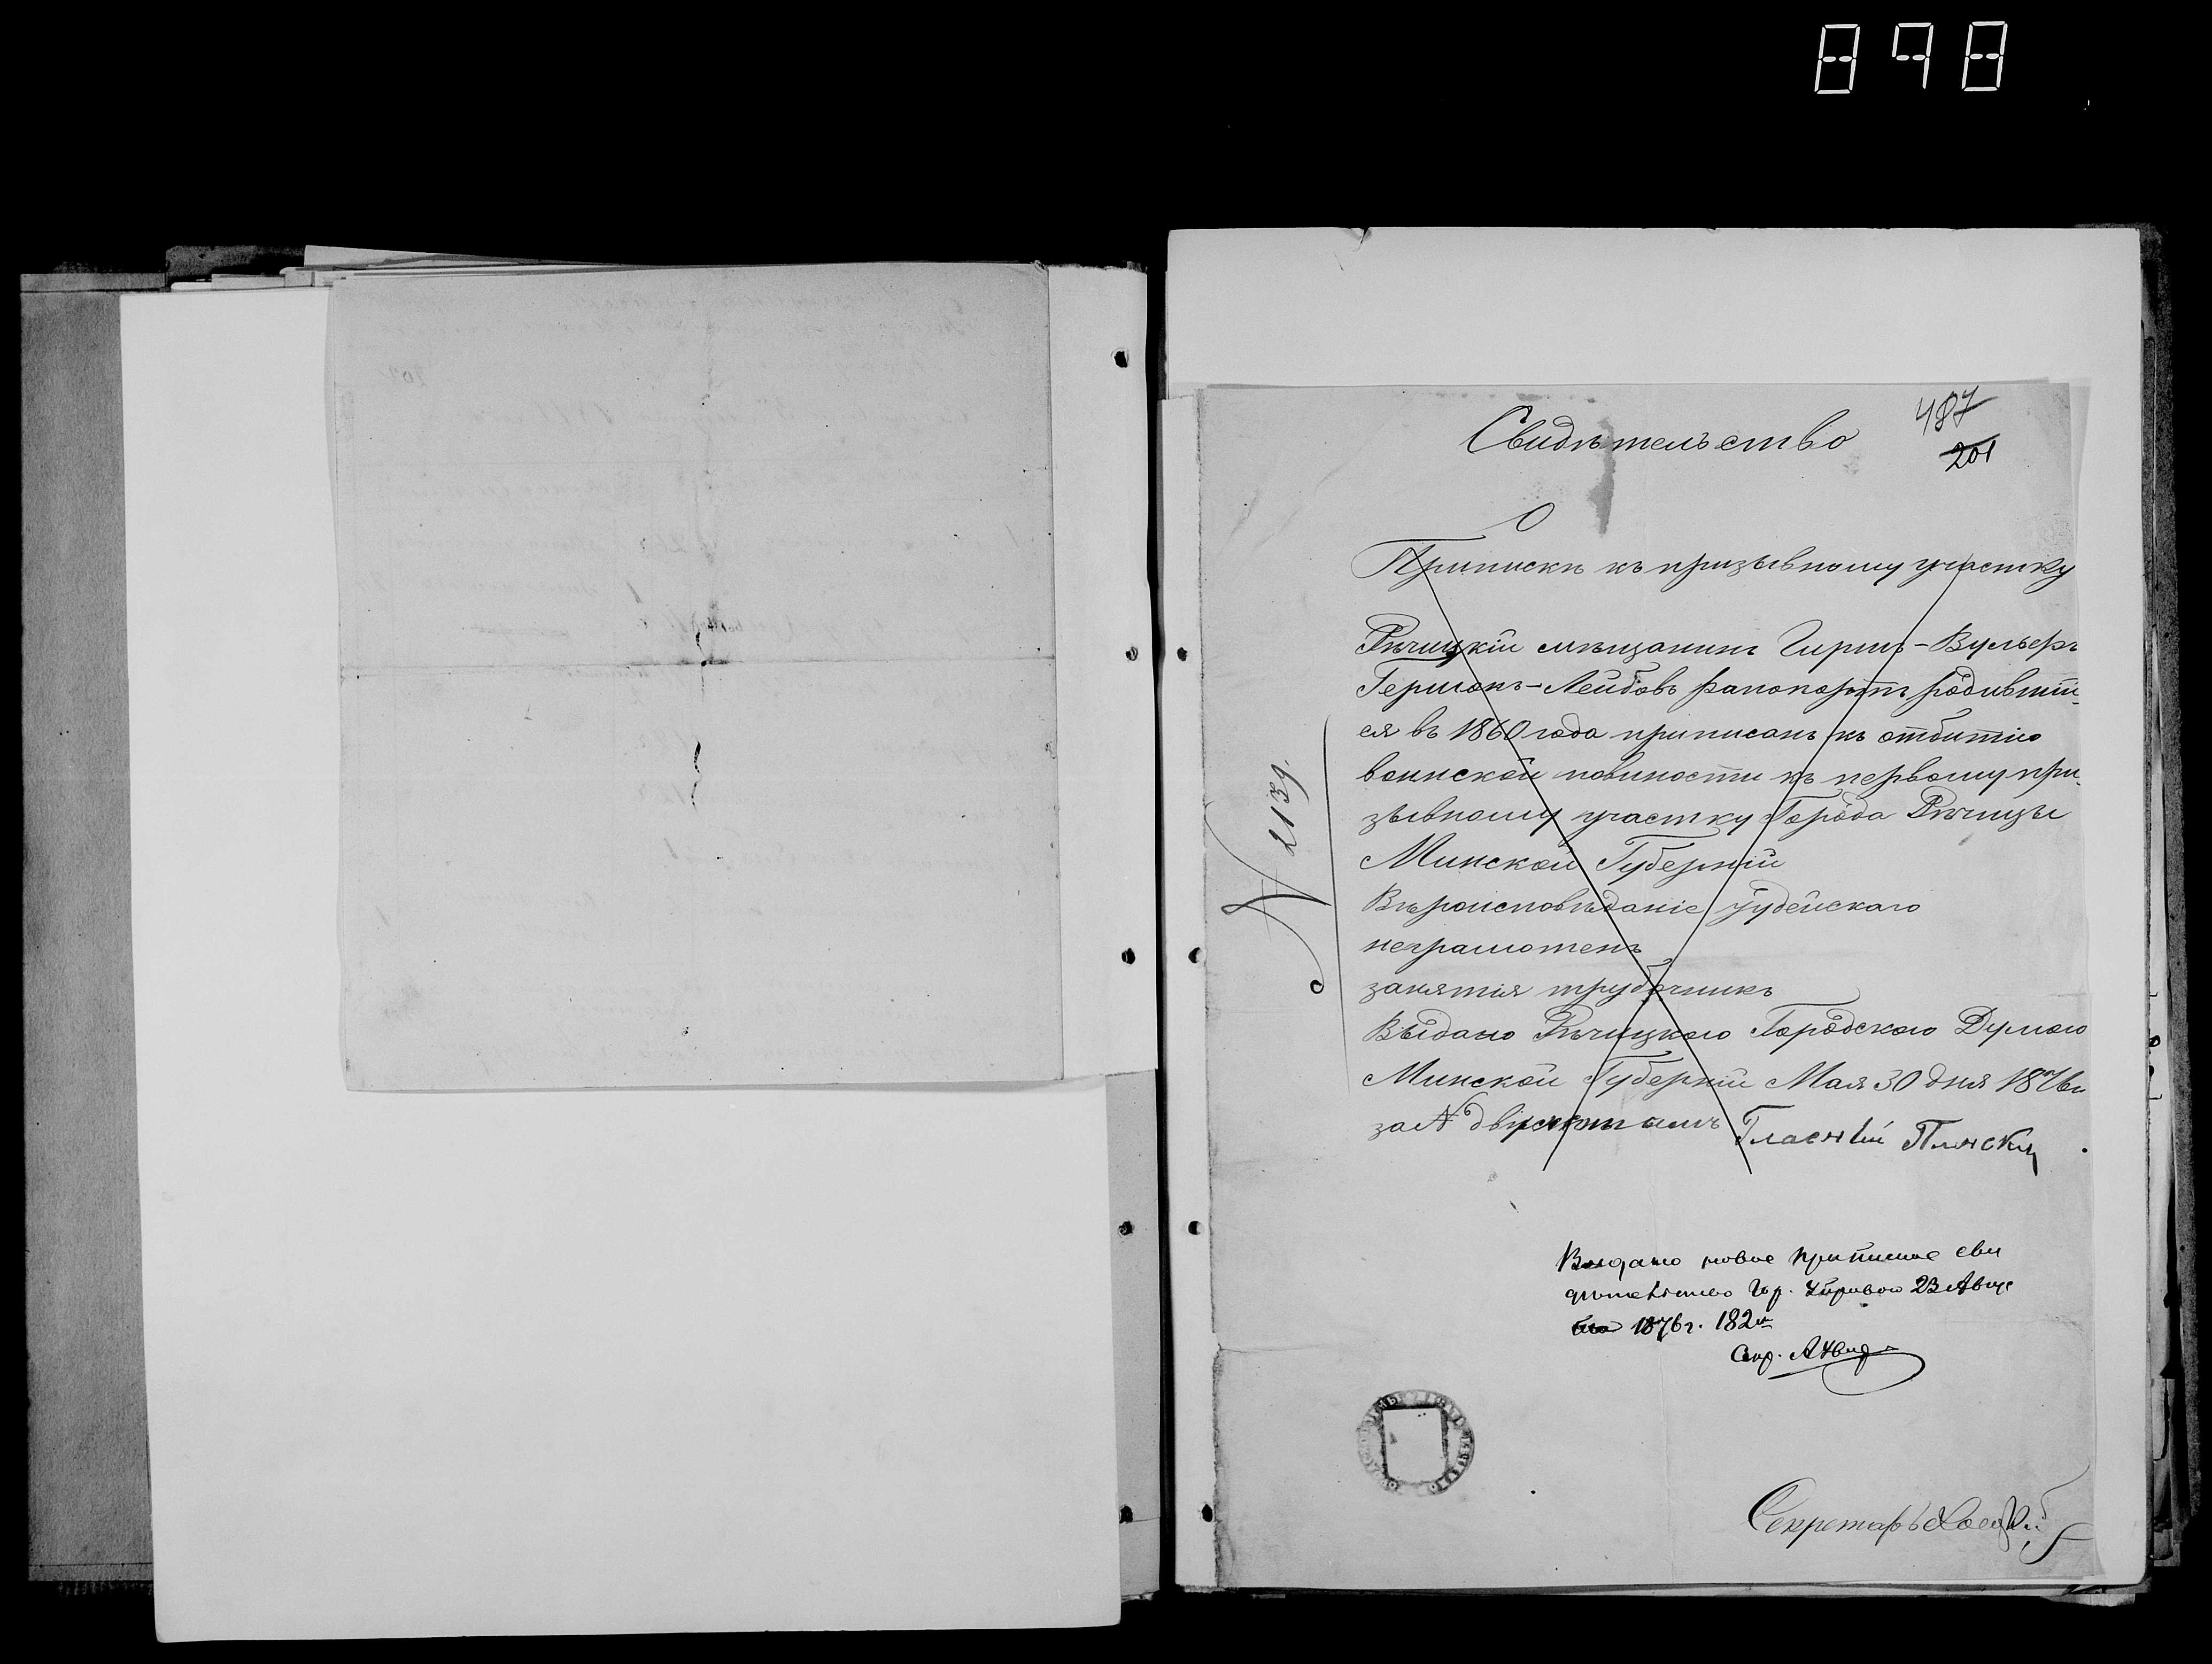 898
487
201
Свидѣтельство
О
Припискѣ къ призывному участку
Рѣчицкій мѣщанинъ Гиршъ-Вульфъ
Гершонъ-Лейбовъ Рапопортъ родившій-
ся въ 1860 года приписанъ къ отбитію
воинской повиности къ первому при-
зывному участку Города Рѣчицы
Минской Губерніи
Вѣроисповѣданіе іудейскаго
неграмотенъ
занятія трубочникъ
Выдано Рѣчицкою Городскою Думою
Минской Губерніи Мая 30 дня 1876 г.
за № двухсотымъ
Гласный Пинскій
N 2139.
Выдано новое приписное сви
дѣтельство Гор. Управою 23 Авгус
1876 г. 182
Секр.
Секретарь